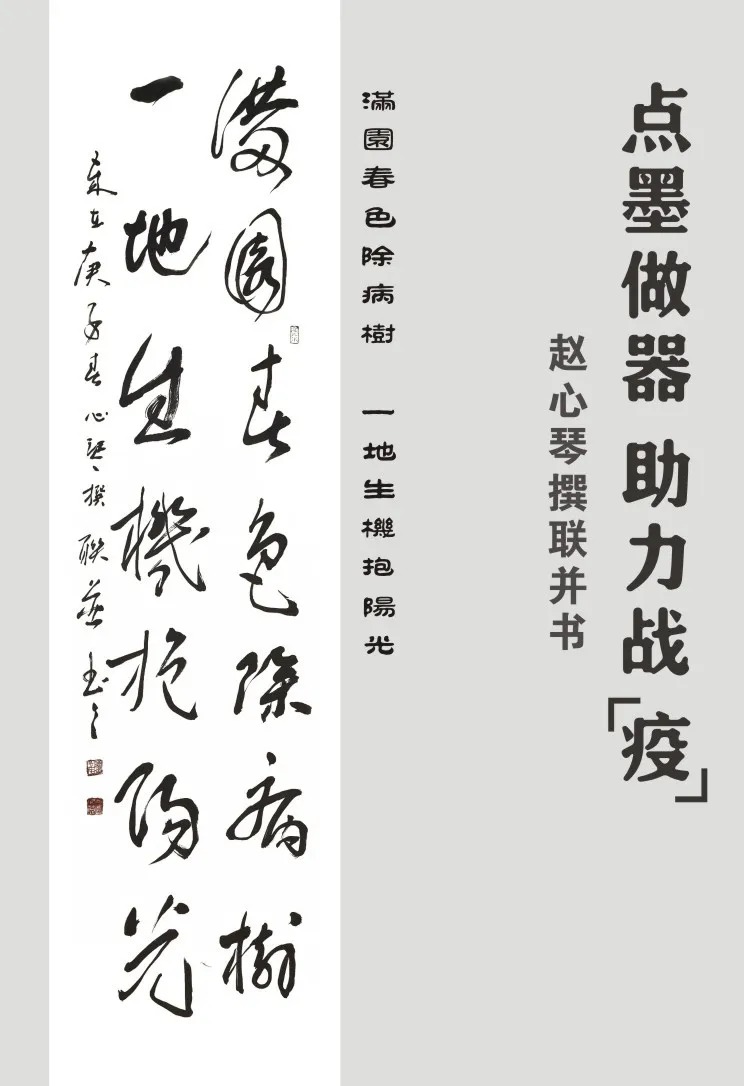 点墨做器 助力战「疫」
赵心琴撰联并书
滿園春色除病樹 一地生機抱陽光
滿園春色除病樹
一地生機抱陽光
歲在庚子春心琴撰聯並書之